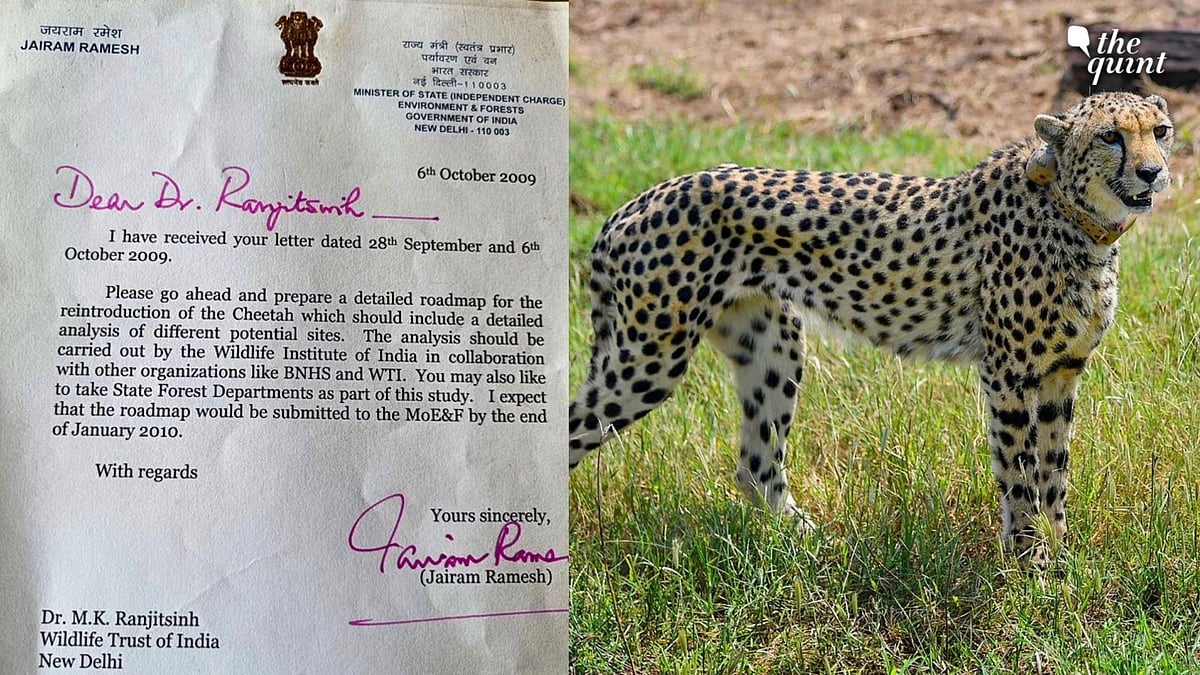 जयराम रमेश
JAIRAM RAMESH
सत्यमेव जयते
राज्य मंत्री (स्वतंत्र प्रभार)
पर्यावरण एवं वन
भारत सरकार
नई दिल्ली-110003
MINISTER OF STATE (INDEPENDENT CHARGE)
ENVIRONMENT & FORESTS
GOVERNMENT OF INDIA
NEW DELHI - 110 003
6th October 2009
Dear Dr. Ranjitsinh
I have received your letter dated 28th September and 6th
October 2009.
Please go ahead and prepare a detailed roadmap for the
reintroduction of the Cheetah which should include a detailed
analysis of different potential sites. The analysis should be
carried out by the Wildlife Institute of India in collaboration
with other organizations like BNHS and WTI. You may also like
to take State Forest Departments as part of this study. I expect
that the roadmap would be submitted to the MoE&F by the end
of January 2010.
With regards
Yours sincerely,
Jairam Rames
(Jairam Ramesh)
Dr. M.K. Ranjitsinh
Wildlife Trust of India
New Delhi
the
quint